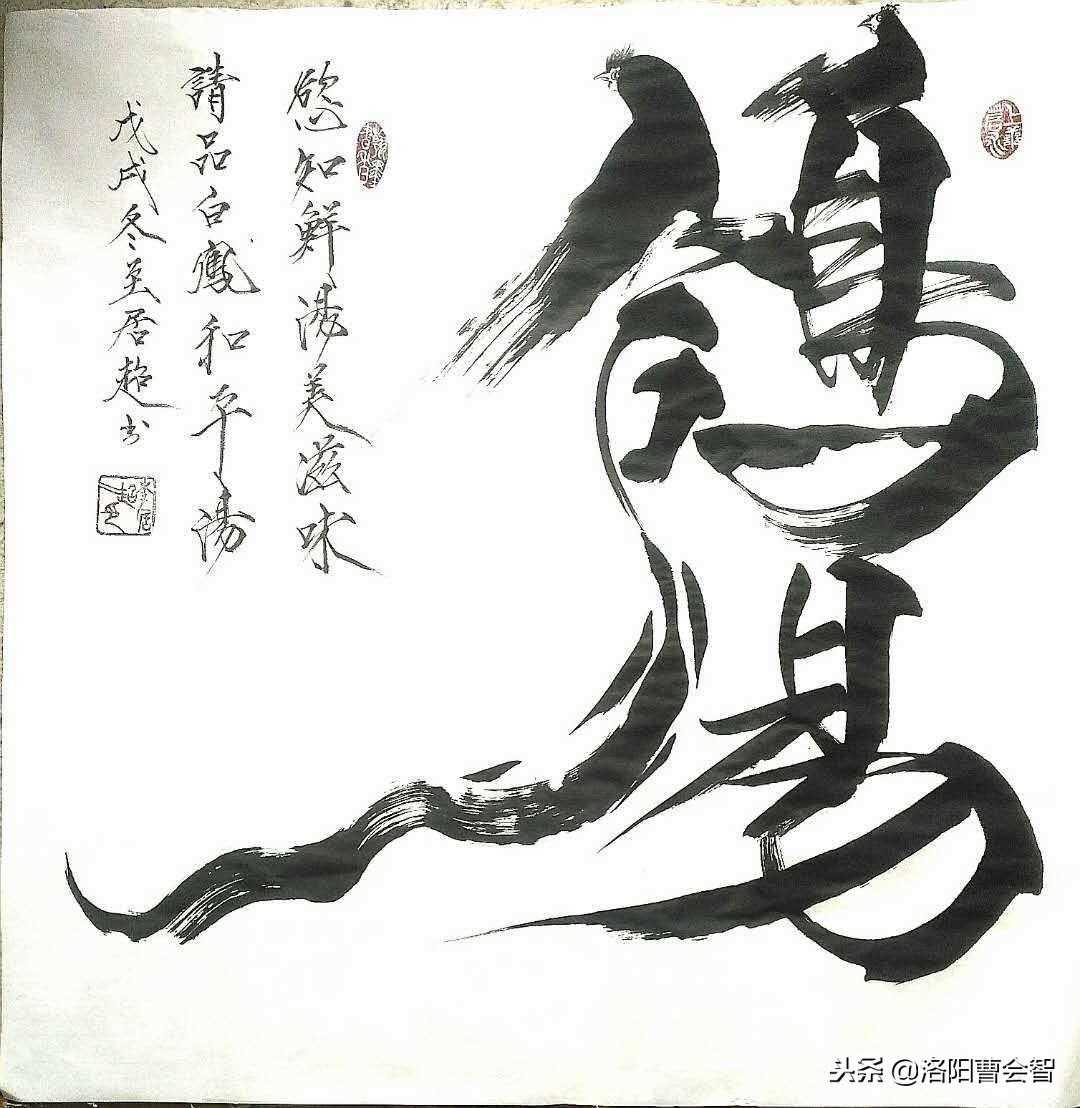 鴿湯
慾知鮮湯美滋味
請品白鳳和平湯
戊戌冬至居超书
头条 @洛阳曹会智